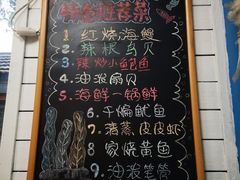 特色推荐菜
1 红烧海鳗
2 辣根鸟贝
3 辣炒小鲍鱼
4 油泼扇贝
5 海鲜一锅鲜
6 干煸鱿鱼
7 清蒸皮皮虾
8 家烧黄鱼
9 油泼笔筒